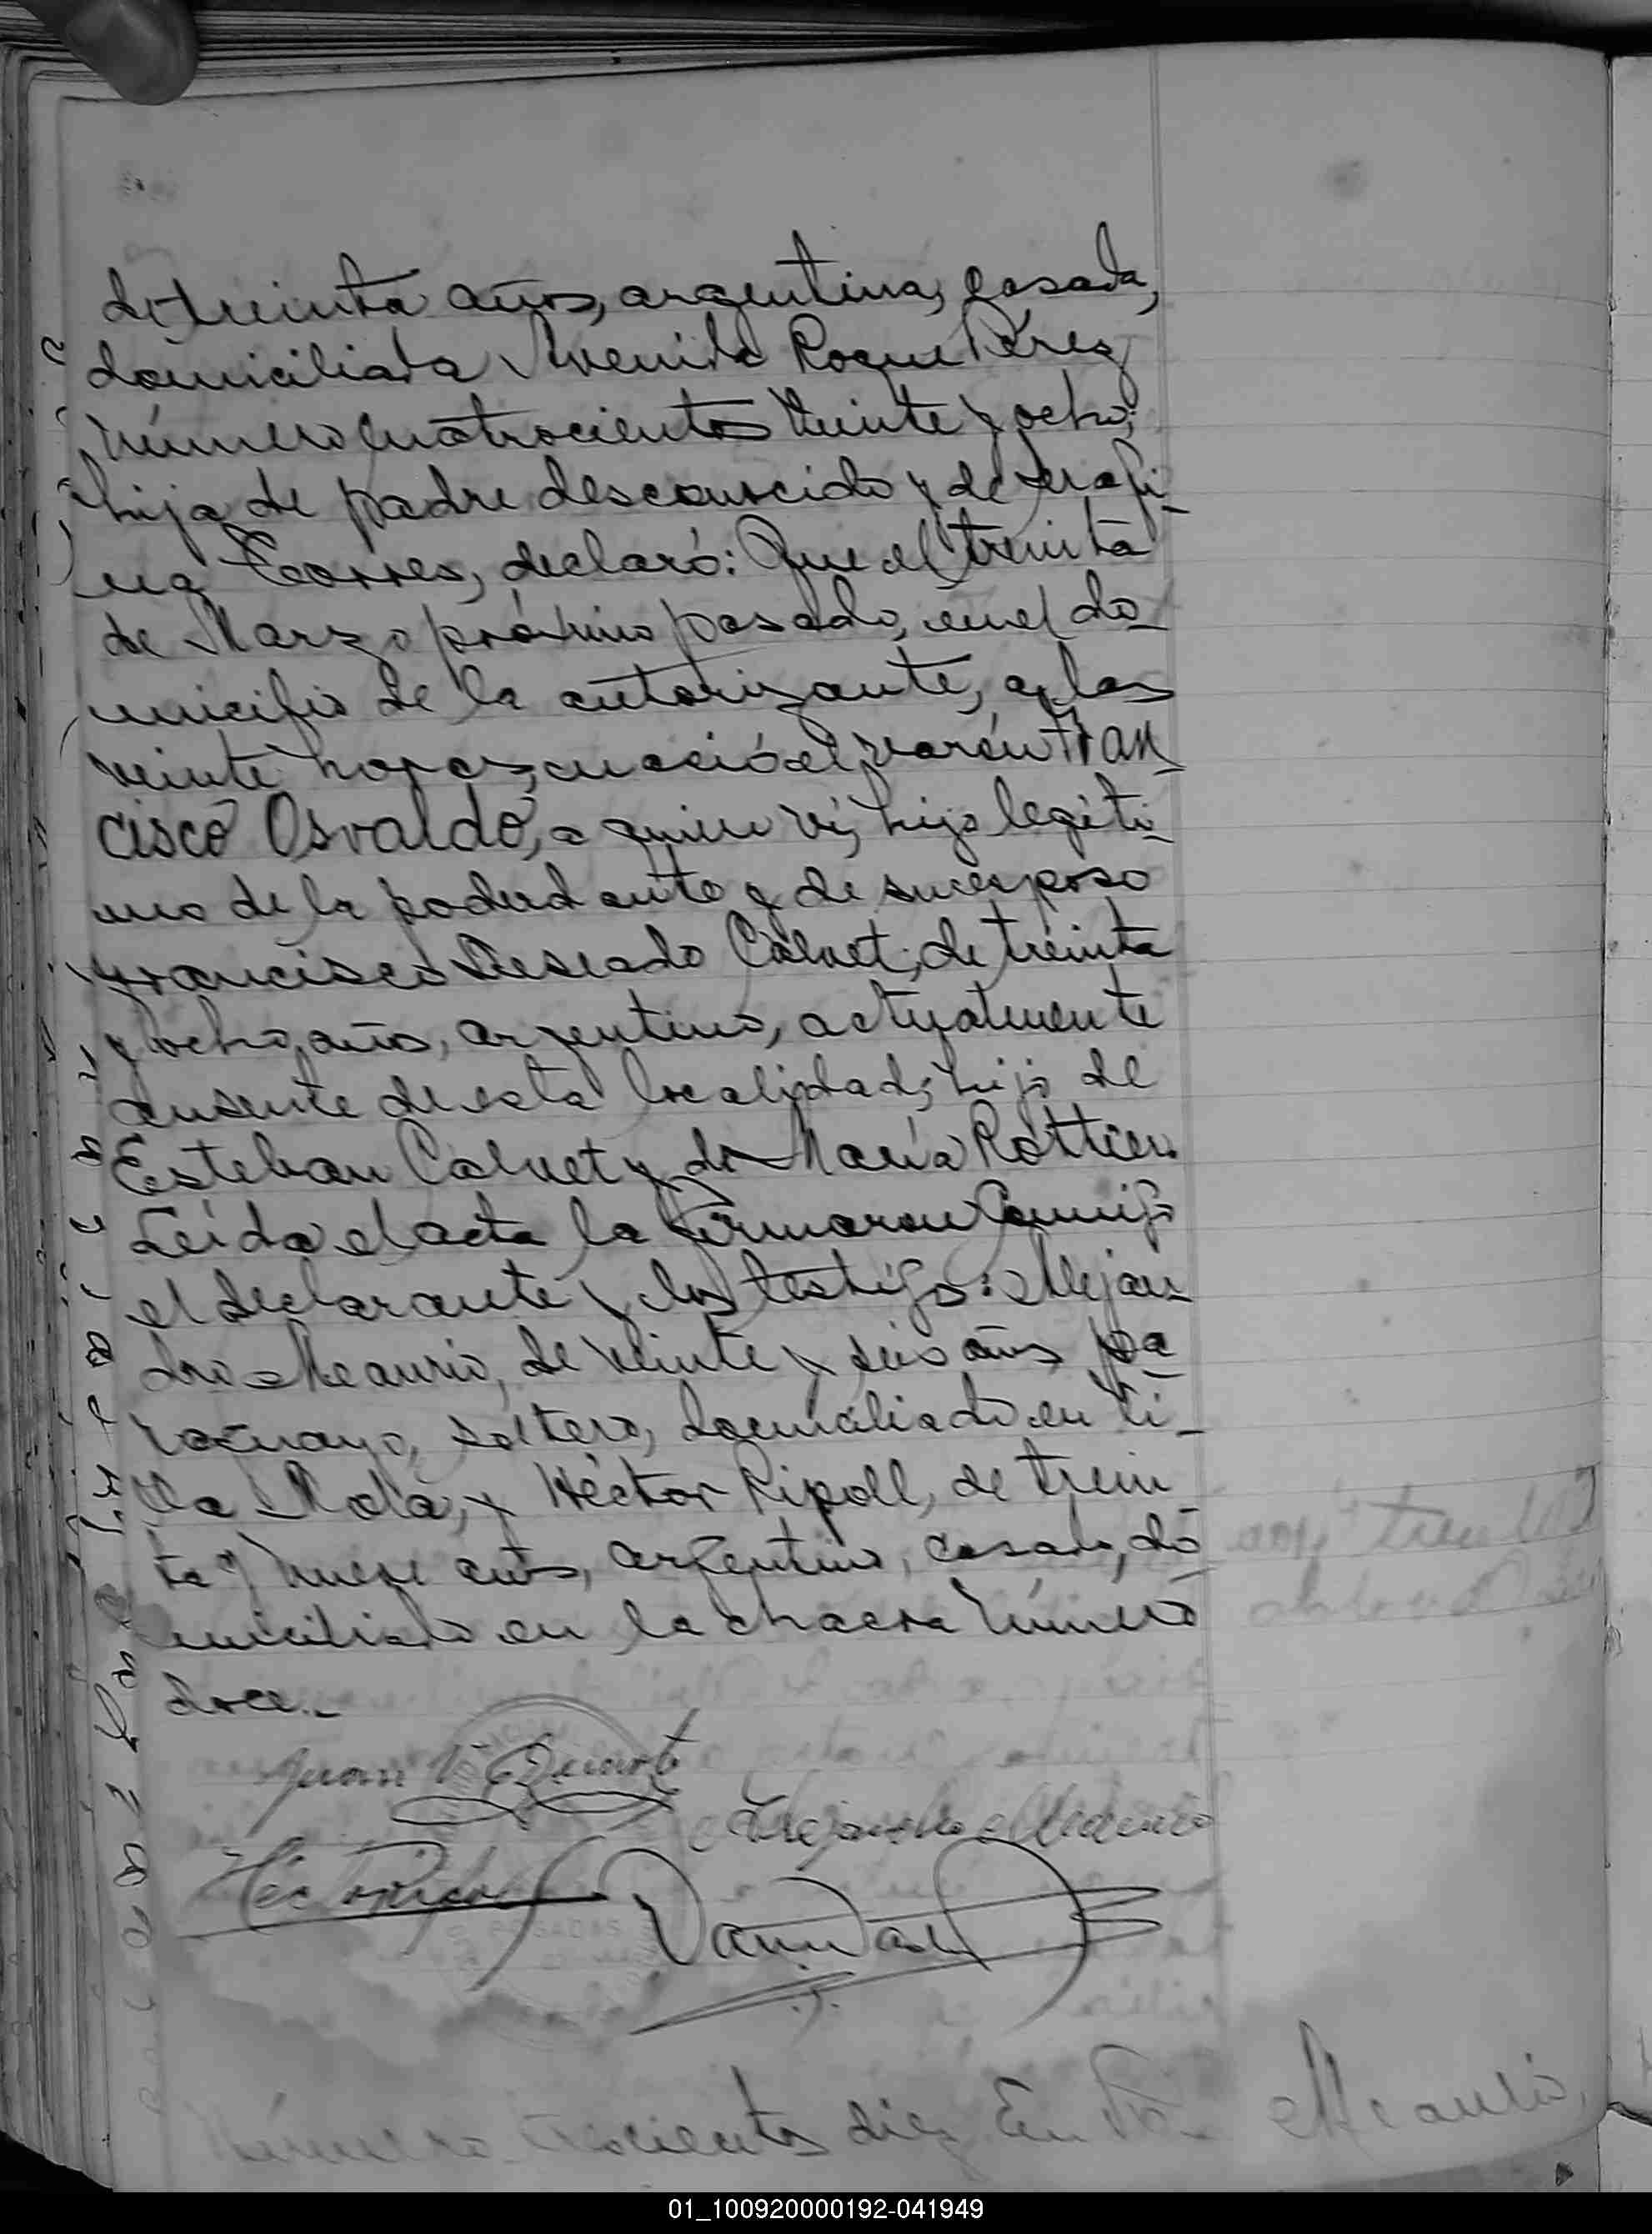 de treinta años, argentina, casada,
domiciliada Avenida Roque Pérez
número cuatrocientos veinte y ocho;
hija de padre desconocido y de Serafi-
na Torres, declaró: Que el treinta
de Marzo próximo pasado, en el do-
micilio de la autorizante, a las
veinte horas, nació el varón Fran-
cisco Osvaldo, a quien ví, hijo legíti-
mo de la poderdante y de su esposo
Francisco Deseado Calvet, de treinta
y ocho años, argentino, actualmente
ausente de esta localidad; hijo de
Esteban Calvet y de María Rottier.
Leída el acta la firmaron conmigo
el declarante y los testigos: Alejan-
dro Meaurio, de veinte y seis años pa-
raguayo, soltero, domiciliado en Vi-
lla Mola, y Héctor Ripoll, de trein
ta y nueve años, argentino, casado, do-
miciliado en la chacra número
doce.-
Juan V. Duarte
Alejandro Meaurio
Héctor Ripoll
POSADAS
Número trescientos diez En Meaurio,
01_100920000192-041949